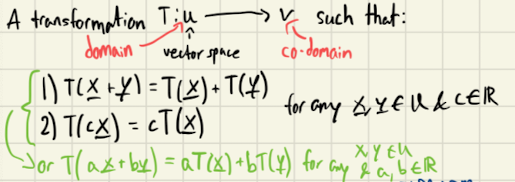 A transformation T: u ⟶ v such that:
domain vector space co-domain
1) T(x + y) = T(x) + T(y)
for any x, y ∈ U & c ∈ ℝ
2) T(cx) = cT(x)
or T(ax + by) = aT(x) + bT(y) for any x, y ∈ U & a, b ∈ ℝ